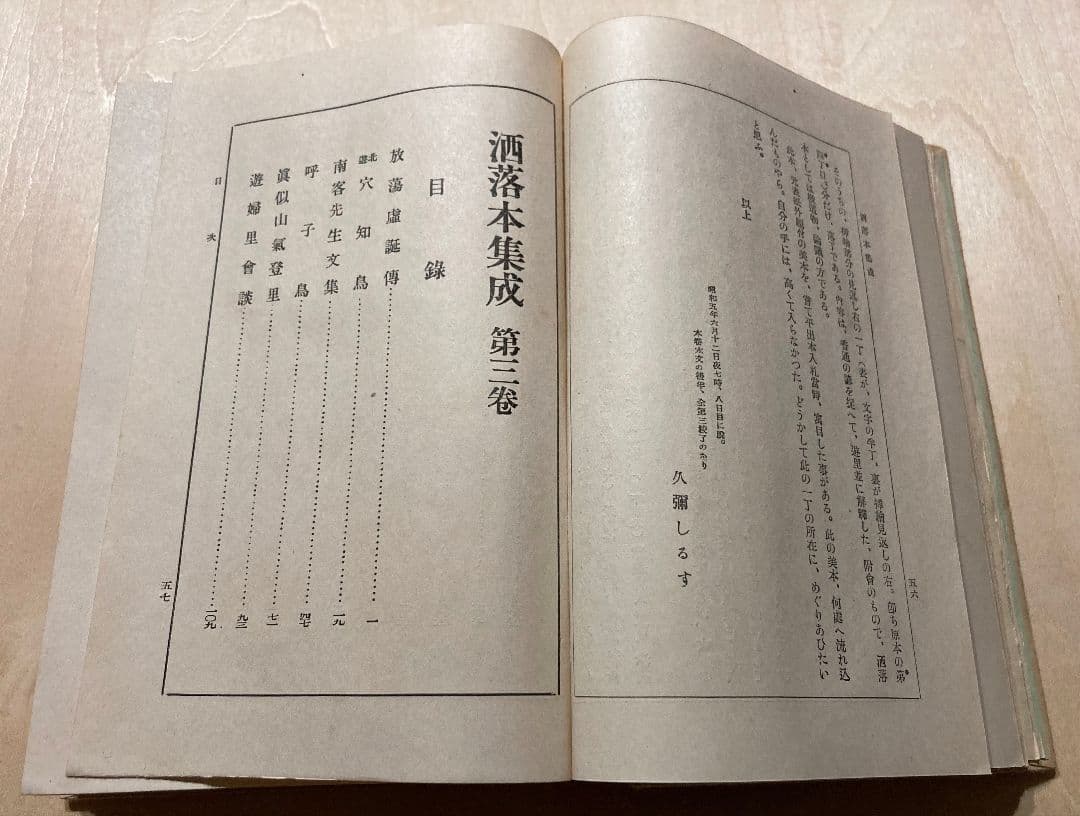 洒落本集成
五六
そのうちの、挿繪部分の見返し右の一丁(表が、文字の半丁、裏が挿繪見返しの右。卽ち原本の第
四丁目)だけ、である。內容は、普通の諺を捉へて、遊里並に解釋した、附會のもので、洒落
本としては、論議の方である。
此本、完表紙外題付の美本を、曾て平出本入札當時、寓目した事がある。此の美本、何處へ流れ込
んだものやら。自分の手には、高くて入らなかつた。どうかして此の一丁の所在に、めぐりあひたい
と思ふ。
以上
昭和五年六月十二日夜七時、八日目に脫。
本卷本文の後半、全第三校了の
久彌しるす
洒落本集成 第三卷
目錄
放蕩虛誕傳……一
北遊穴知鳥……一九
南客先生文集……四七
呼子鳥……七一
眞似山氣登里……九三
遊婦里會談……一〇九
目次
五七